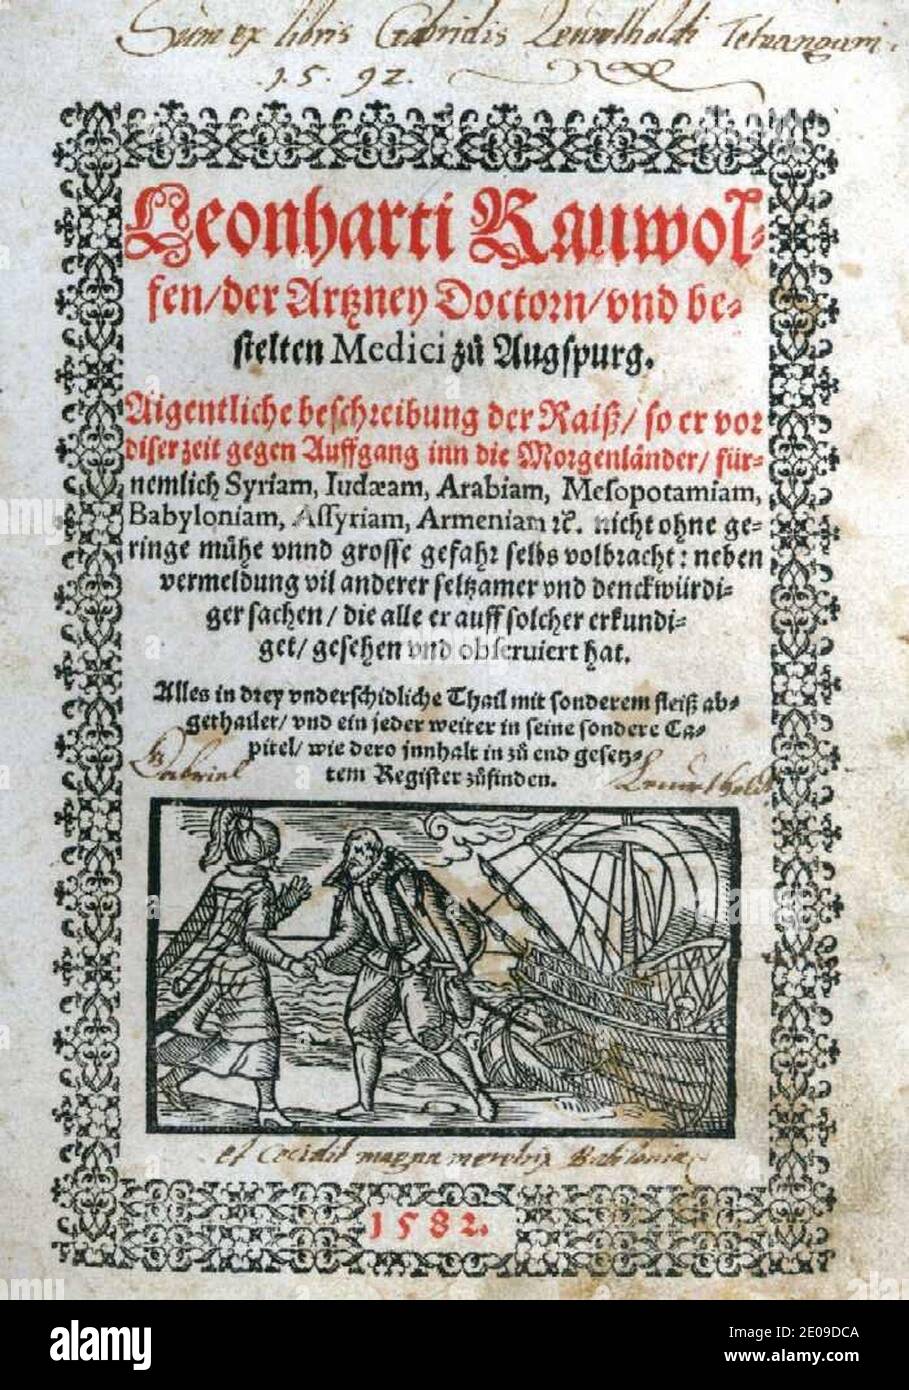 Sum ex libris Gabrielis
1592.
Leonharti Rauwol-
fen/der Artzney Doctorn/vnd be-
stelten Medici zů Augspurg.
Aigentliche beschreibung der Raiß/ so er vor
diser zeit gegen Auffgang inn die Morgenländer/ für-
nemlich Syriam, Iudæam, Arabiam, Mesopotamiam,
Babyloniam, Assyriam, Armeniam ꝛc. nicht ohne ge-
ringe mühe vnnd grosse gefahr selbs volbracht: neben
vermeldung vil anderer seltzamer vnd denckwürdi-
ger sachen/ die alle er auff solcher erkundi-
get/ gesehen vnd obseruiert hat.
Alles in drey vnderschidliche Thail mit sonderem fleiß ab-
gethailet/ vnd ein jeder weiter in seine sondere Ca-
pitel/ wie dero jnnhalt in zů end gesetz-
tem Register zůfinden.
Gabriel
et cecidit magna meretrix Babilonia
1582.
alamy
Image ID: 2E09DCA
www.alamy.com